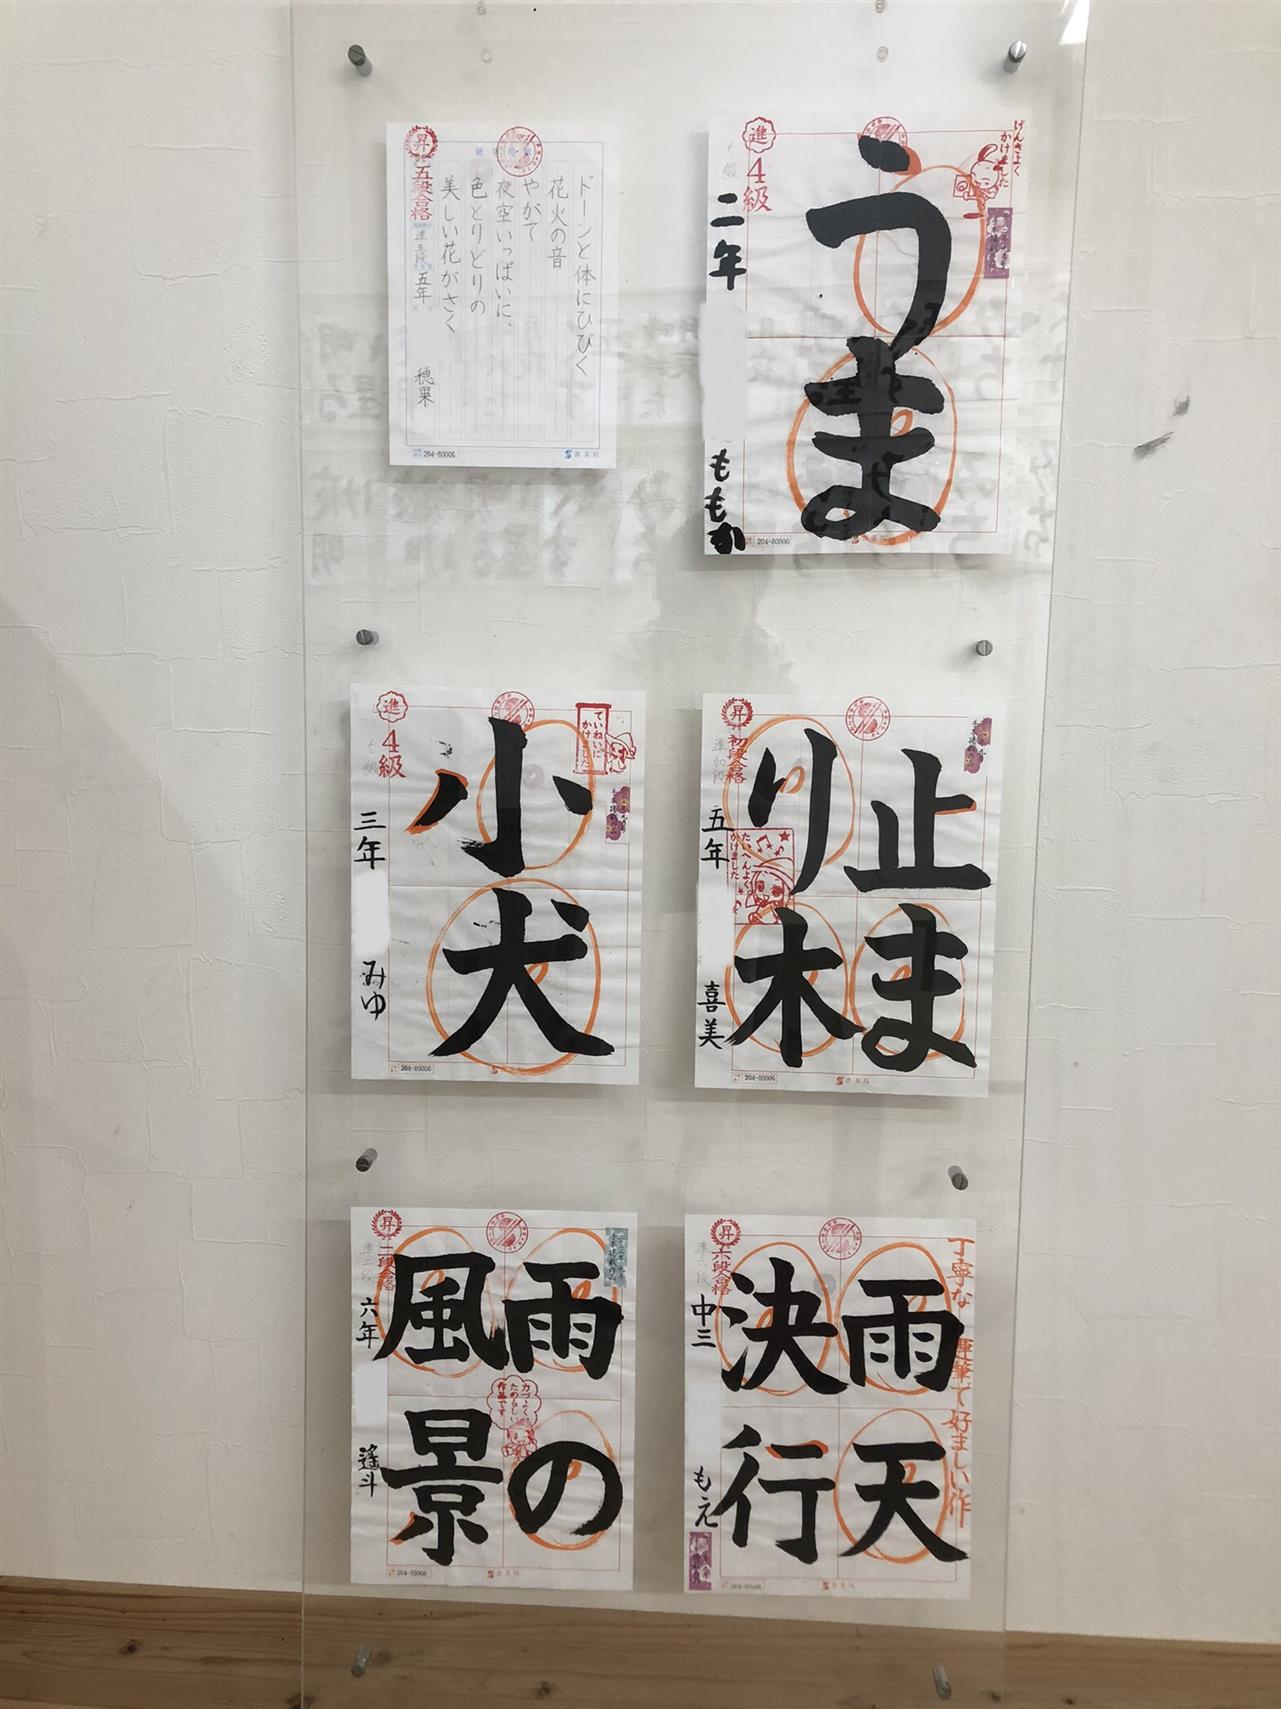 昇
五段合格
準五段
五年
穂果
ドーンと体にひびく
花火の音
やがて
夜空いっぱいに、
色とりどりの
美しい花がさく
204-80006
書菜院
進
4級
げんきよく
かけました
うま
二年
ももか
204-80006
進
4級
ていねいに
かけました
小犬
三年
みゆ
204-80006
昇
初段合格
準初段
たいへんよく
かけました
止ま
り木
五年
喜美
204-80006
昇
二段合格
準二段
力づよく
たのもしい
作品です
雨の
風景
六年
遙斗
204-80006
昇
六段合格
丁寧な運筆で好ましい作
雨天
決行
中三
もえ
204-80006